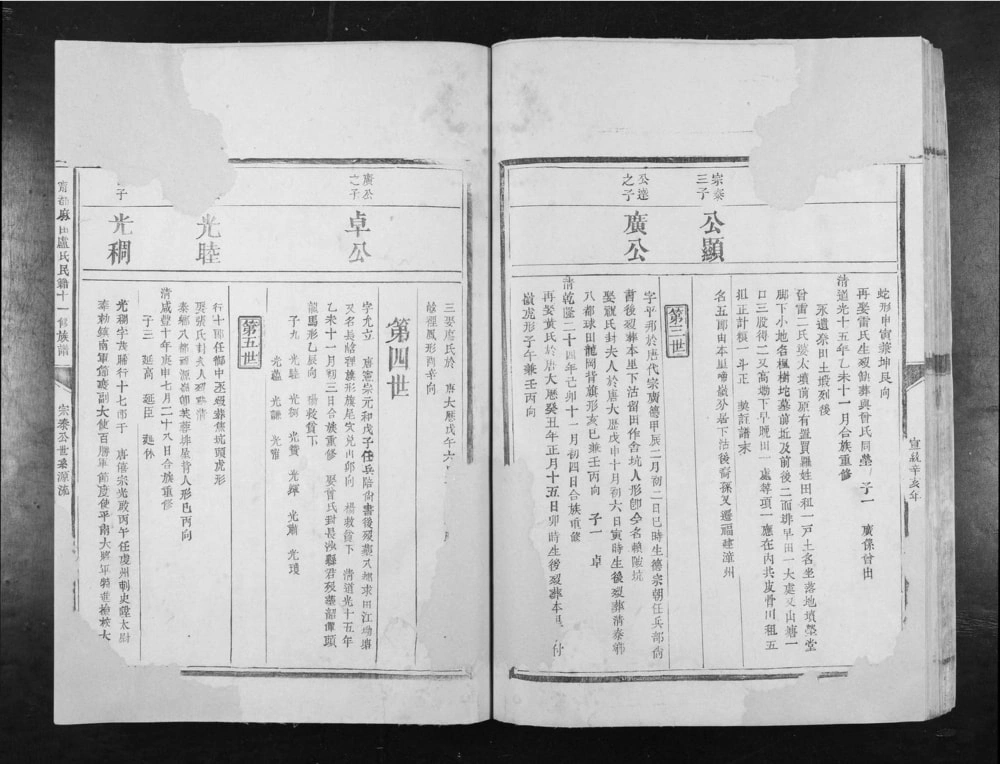 宣統辛亥年
宗泰
三子
公顯
公達
之子
廣公
蛇形申寅葉坤艮向
再娶雷氏生歿葬與曾氏同塋 子一 廣係曾由
清道光十五年乙未十一月合族重修
永遺奈田土塅列後
曾雷二氏奠太墳前原有置買羅姓田租一戶土名坐落地墳塋堂
脚下小地名楓樹坨墓前坵及前後二面埤早田一大處又山塘一
口三股得二又高塅下早晚田一處等項一應在內共皮骨川租五
担正計糧一斗正 契註譜末
名五郎由本里喃嶽分居下沽後裔孫又遷福建漳州
第三世
字平邦於唐代宗廣德甲辰二月初二日巳時生德宗朝任兵部尚
書後歿葬本里下沽窑田作舍坑人形卽今名賴陂坑
娶寵氏封夫人於唐大歷戊申十月初六日寅時生後歿葬清泰鄉
八都球田龍岡背旗形亥巳兼壬丙向 子一 卓
清乾隆二十四年己卯十一月初四日合族重修
再娶黃氏於唐大歷癸丑年正月十五日卯時生後歿葬本 付
嶽虎形子午兼壬丙向
廣公
之子
卓公
光睦
子
光稠
三娶廖氏於 唐大歷戊午六
鳳形酉辛向
第四世
字光立 唐憲宗元和戊子任兵陪尚書後歿葬八都球田江坳塘
又名長陰裡旗形旗尾穴兌山卯向 楊救貧下 清道光十五年
乙未十一月初三日合族重修 娶曾氏封長沙縣君歿葬韶傳頭
龍馬形乙辰向 楊救貧下
子九 光睦 光稠 光贊 光 光肅 光瓊
光 光謙 光
第五世
行十郎任御中丞歿葬焦坑頭虎形
娶張氏封夫人歿
泰鄉八都 人形巳丙向
清咸豐十年庚申七月二十八日合族重修
子三 延高 延臣 延休
光稠字茂勝行十七郎于 唐僖宗光啟丙午任虔州刺史陞太尉
奉勑鎮南軍節度副大使百勝軍節度使平南大將軍特進檢校太
甯都麻田盧氏民籍十一修族譜
宗泰公世系源流